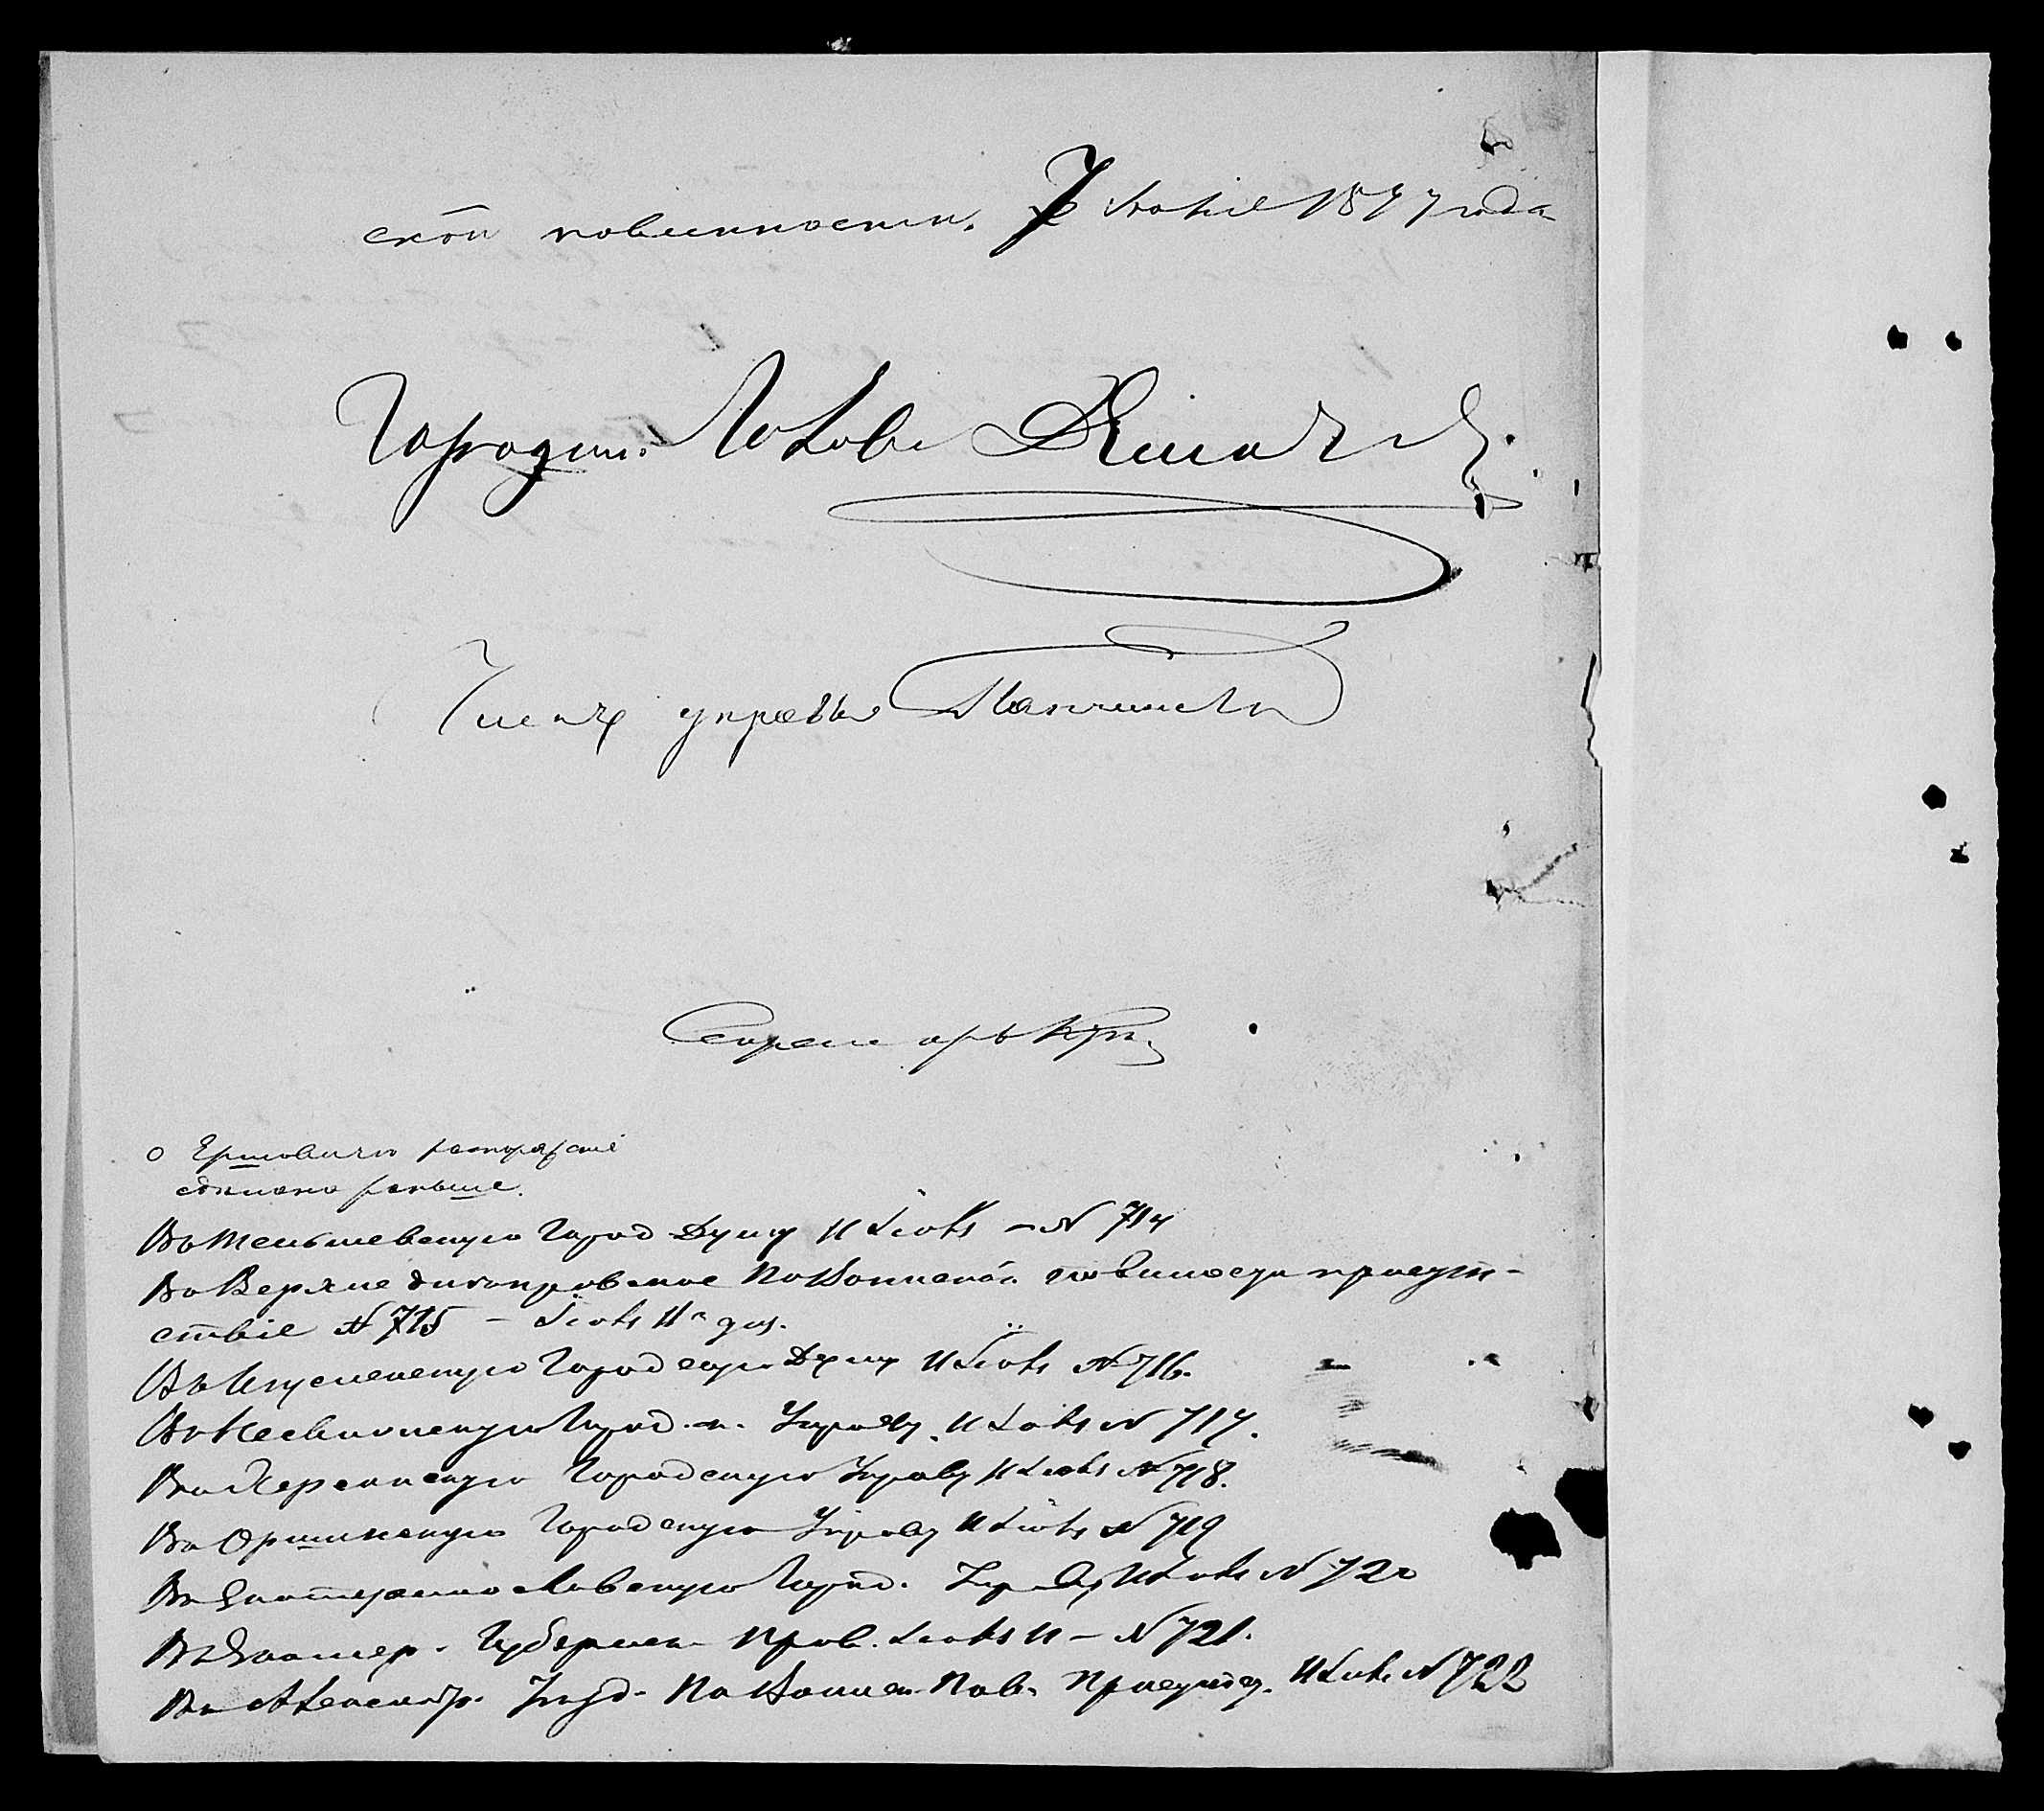 ской повинности. 7 Іюня 1877 года
Городск. Голова
Членъ управы
Секретарь
о Ермовичѣ распоряженіе
сдѣлано раньше.
Въ Город Думу 11 Іюля – N 714
Въ Верхнеднѣпровское По Воинской повинности присут-
ствіе N 715 – Іюля 11 дня.
Въ Игуменскую Городскую Думу 11 Іюля N 716.
Въ Город. Управу 11 Іюля N 717.
Въ Херсонскую Городскую Управу 11 Іюля N 718.
Въ Оршинскую Городскую Управу 11 Іюля N 719
Въ Екатеринославскую Город. Управу 11 Іюля N 720
Въ Екатер. Губернск. Прав. Іюля 11 – N 721.
Въ Александр. Уѣзд. По Воинск. Пов. Присутст. 11 Іюля N 722